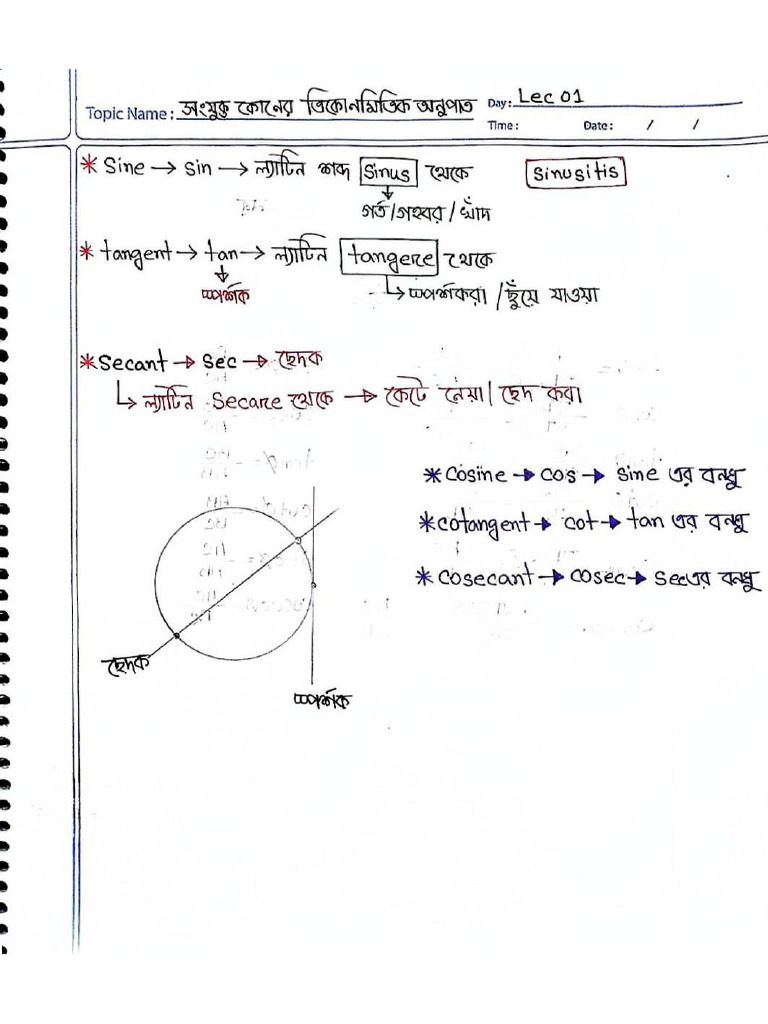 Topic Name: সংযুক্ত কোনের ত্রিকোনমিতিক অনুপাত Day: Lec 01
Time: Date: / /
* Sine → sin → ল্যাটিন শব্দ sinus থেকে sinusitis
গর্ত/গহবর/খাঁদ
* tangent → tan → ল্যাটিন tangere থেকে
স্পর্শক
স্পর্শকরা/ছুঁয়ে যাওয়া
* Secant → sec → ছেদক
ল্যাটিন Secare থেকে → কেটে নেয়া/ছেদ করা
* cosine → cos → sine এর বন্ধু
* cotangent → cot → tan এর বন্ধু
* cosecant → cosec → sec এর বন্ধু
ছেদক
স্পর্শক